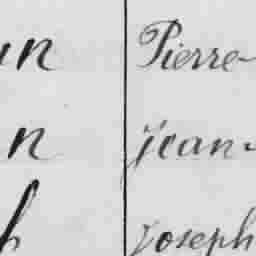 n Pierre
n jean
h joseph